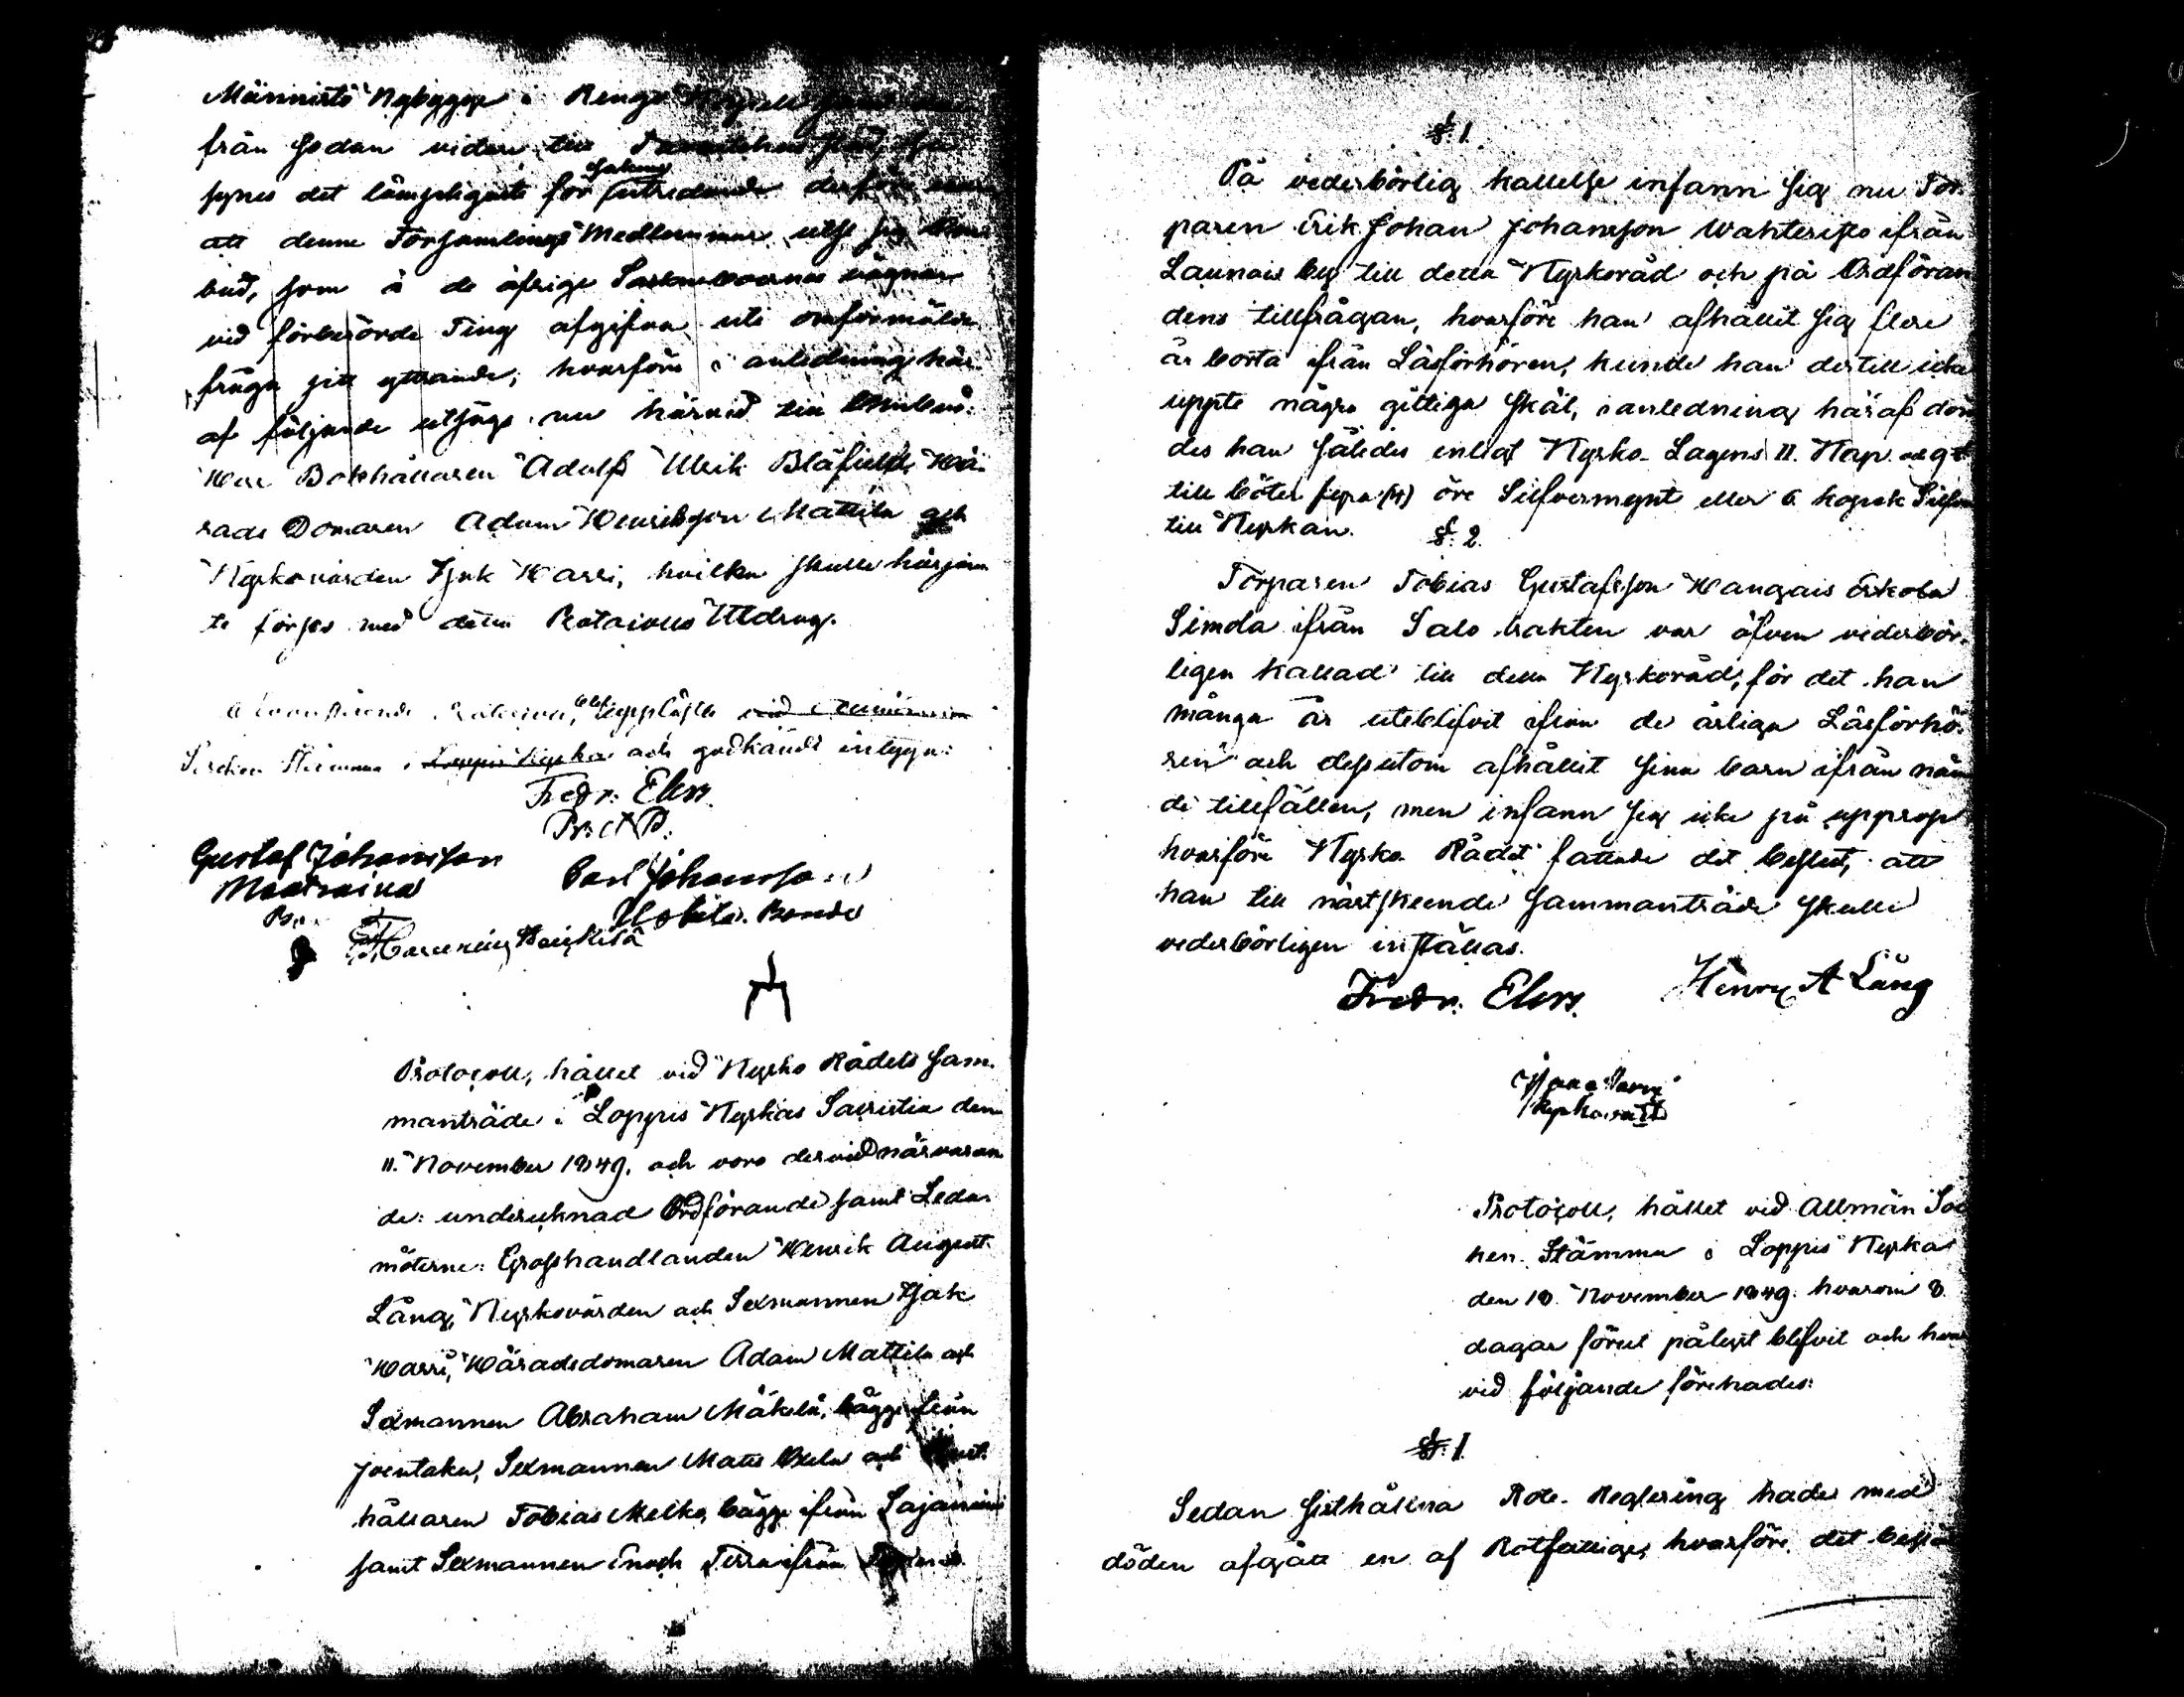 Männistö Nybygge i Rengo
från sedan vidare till
synes det lämpligaste för sakens utredande derföre
att denne Församlings Medlemmar utse sig Ombud
bud, som å de öfrige Sockneboernas vägnar
vid förberörde Ting afgifva uti omförmälde
fråga sitt yttrande; hvarföre i anledning här
af följande utsågs nu härvid till Ombud:
Herr Bokhållaren Adolf Ulrik Blåfield, Hä-
rads Domaren Adam Henriksson Mattila och
Kyrkovärden Isak Harri, hvilka skulle härjem
te förses med detta Protocolls Utdrag.
Ofvanstående Protocoll, blef uppläst vid
Socken Stämma i Loppis Kyrka och godkändt intyga:
Fredr. Elers.
Gustaf Johansson
Maatraina
Carl Johansson
Uotila. Bonde
Protocoll, hållet vid Kyrko Rådets sam-
manträde i Loppis Kyrkas Sacristia den
11. November 1849. och voro dervid närvaran
de: undertecknad Ordförande samt Leda-
möterne: Grosshandlanden Henrik August
Lång, Kyrkovärden och Sexmannen Isak
Harri, Häradsdomaren Adam Mattila och
Sexmannen Abraham Mäkelä, bägge från
Joentaka, Sexmannen Matts Ockla och
hållaren Tobias Melko, bägge ifrån Sajaniemi
samt Sexmannen Enoch Terra ifrån
§. 1.
På vederbörlig kallelse infann sig nu Tor-
paren Erik Johan Johansson Wahteristo ifrån
Launais by till detta Kyrkoråd och på Ordföran
dens tillfrågan, hvarföre han afhållit sig flere
år borta ifrån Läsförhören, kunde han dertill icke
uppte några giltiga skäl, i anledning häraf döm
des han således enligt Kyrko-Lagens II. Kap. och 9 §
till böter fyra (4) öre Silfvermynt eller 6 kopek Silfver
till Kyrkan.
§. 2.
Torparen Tobias Gustafsson Hangais Erkola
Simola ifrån Salo trakten var äfven vederbör-
ligen kallad till detta Kyrkoråd, för det han
många år uteblifvit ifrån de årliga Läsförhö-
ren och dessutom afhållit sina barn ifrån näm
de tillfällen, men infann sig icke på upprop
hvarföre Kyrko Rådet fattade det beslut, att
han till nästskeende sammanträde skulle
vederbörligen inställas.
Fredr. Elers. Henry A Lång
Protocoll, hållet vid Allmän Soc
ken Stämma i Loppis Kyrka
den 18. November 1849. hvarom 8.
dagar förut pålyst blifvit och hvar
vid följande förehades:
§. 1.
Sedan sisthållna Rote-Reglering hade med
döden afgått en af Rotfattige, hvarföre det beslöts